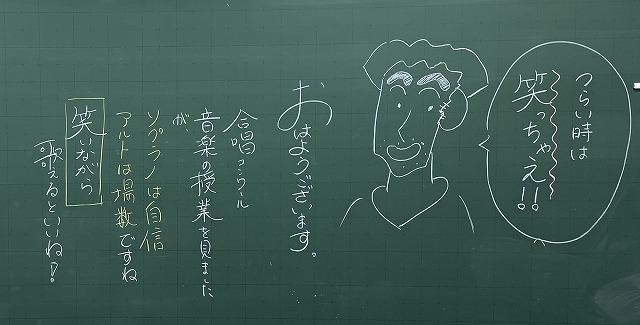 つらい時は
笑っちゃえ!!
おはようございます。
合唱コンクール
音楽の授業を見ました
が、
ソプラノは自信
アルトは場数ですね
笑いながら
歌えるといいね!